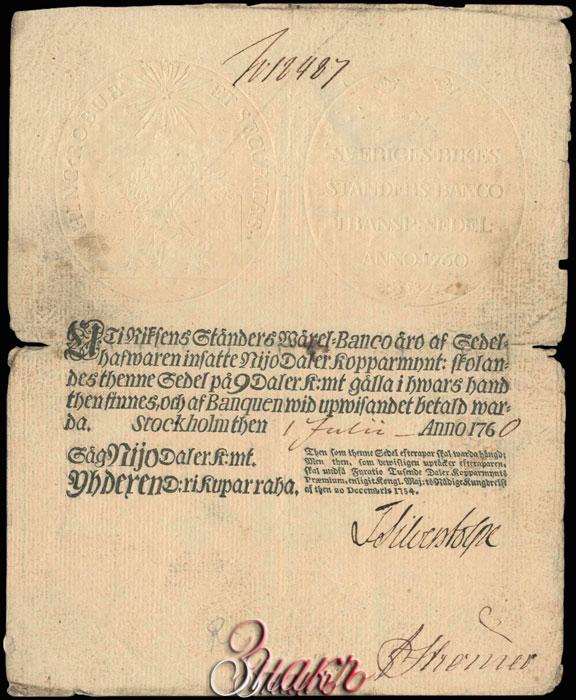 N:12487
HINC ROBUR ET SECURITAS.
SVERIGES RIKES
STÄNDERS BANCO
TRANSP. SEDEL.
ANNO. 1760
UTi Riksens Ständers Wäxel-Banco äro af Sedel-
hafwaren insatte Nijo Daler Kopparmynt: skolan-
des thenne Sedel på 9 Daler K:mt gälla i hwars hand
then finnes, och af Banquen wid upwisandet betald war-
da. Stockholm then 1 Julii Anno 1760
Säg Nijo Daler K:mt.
Yhdexen D:ri Kuparraha.
Then som thenne Sedel efterapar skal warda hängd:
Men then, som bewisligen uptäcker efteraparen,
skal undfå Fyratio Tusende Daler Kopparmynts
Præmium, enligit Kongl. Maj:ts Nådige Kungörelse
af then 20 Decembris 1754.
J Silverstolpe
Знакъ
Strömer